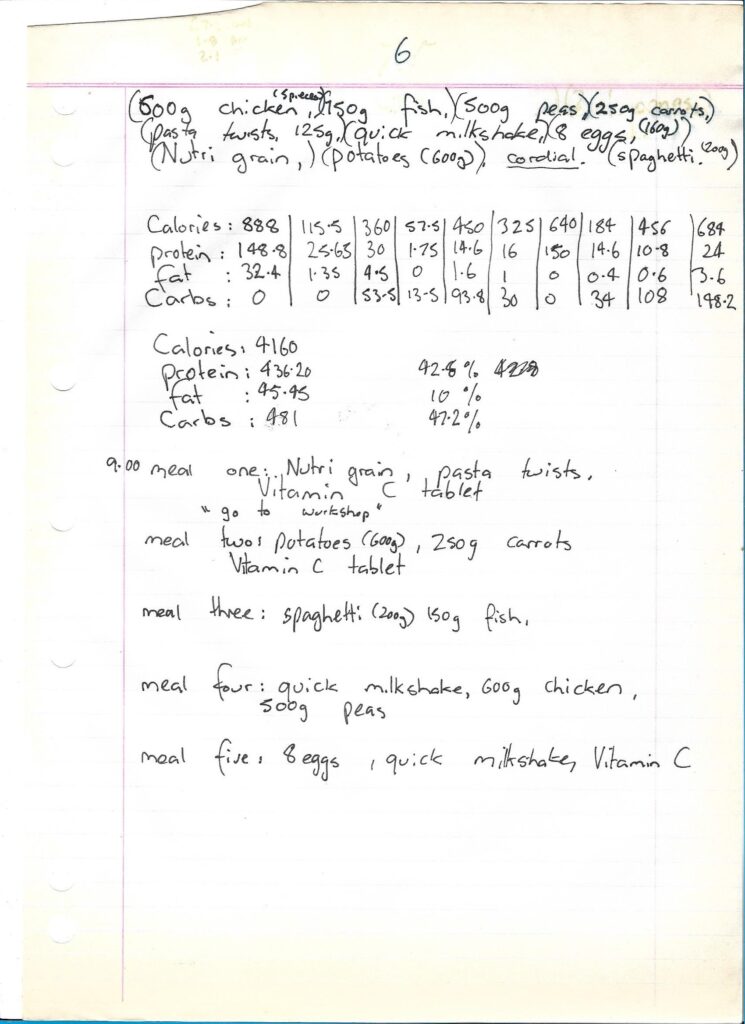 6
(500g chicken, (5 pieces))(150g fish,)(500g peas,)(250g carrots,)
(pasta twists, 125g,)(quick milkshake,)(8 eggs, (160g))
(Nutri grain,)(potatoes (600g)), cordial. (spaghetti. (200g))
Calories: 888 | 115.5 | 360 | 57.5 | 450 | 325 | 640 | 184 | 456 | 684
protein: 148.8 | 25.65 | 30 | 1.75 | 14.6 | 16 | 150 | 14.6 | 10.8 | 24
fat : 32.4 | 1.35 | 4.5 | 0 | 1.6 | 1 | 0 | 0.4 | 0.6 | 3.6
Carbs : 0 | 0 | 53.5 | 13.5 | 93.8 | 30 | 0 | 34 | 108 | 148.2
Calories: 4160
protein: 436.20 42.8%
fat : 45.45 10%
Carbs : 481 47.2%
9.00 meal one: Nutri grain, pasta twists.
Vitamin C tablet
"go to workshop"
meal two: potatoes (600g), 250g carrots
Vitamin C tablet
meal three: spaghetti (200g) 150g fish,
meal four: quick milkshake, 600g chicken,
500g peas
meal five: 8 eggs, quick milkshake, Vitamin C